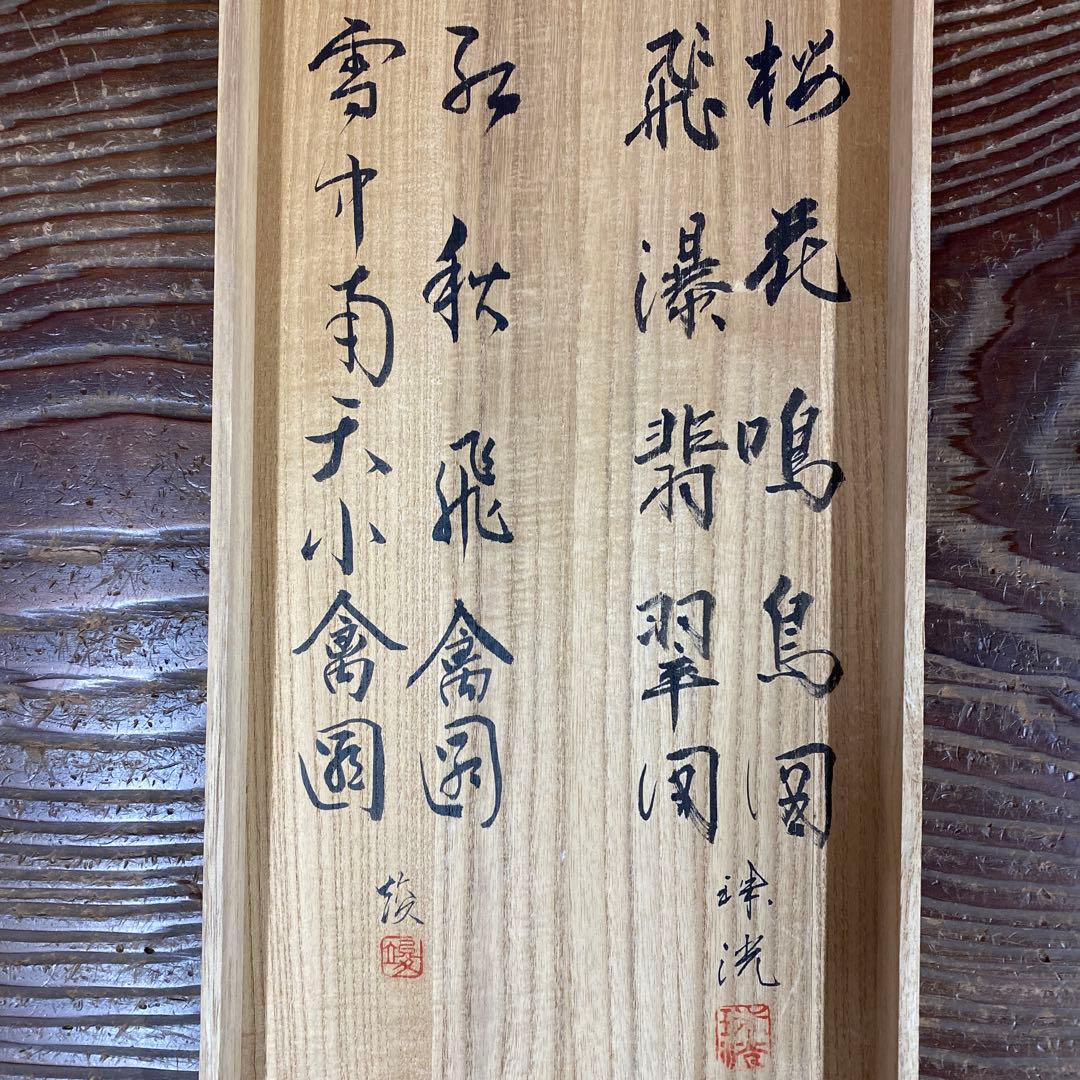 桜花鳴鳥図
飛瀑翡翠図
珠滉
紅秋飛禽図
雪中南天小禽図